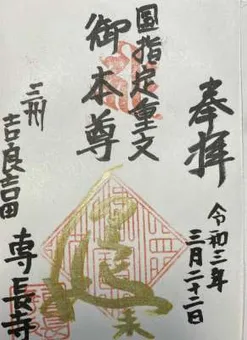 奉拝
令和三年
三月二十二日
国指定重文
御本尊
三州
吉良吉田
専長寺